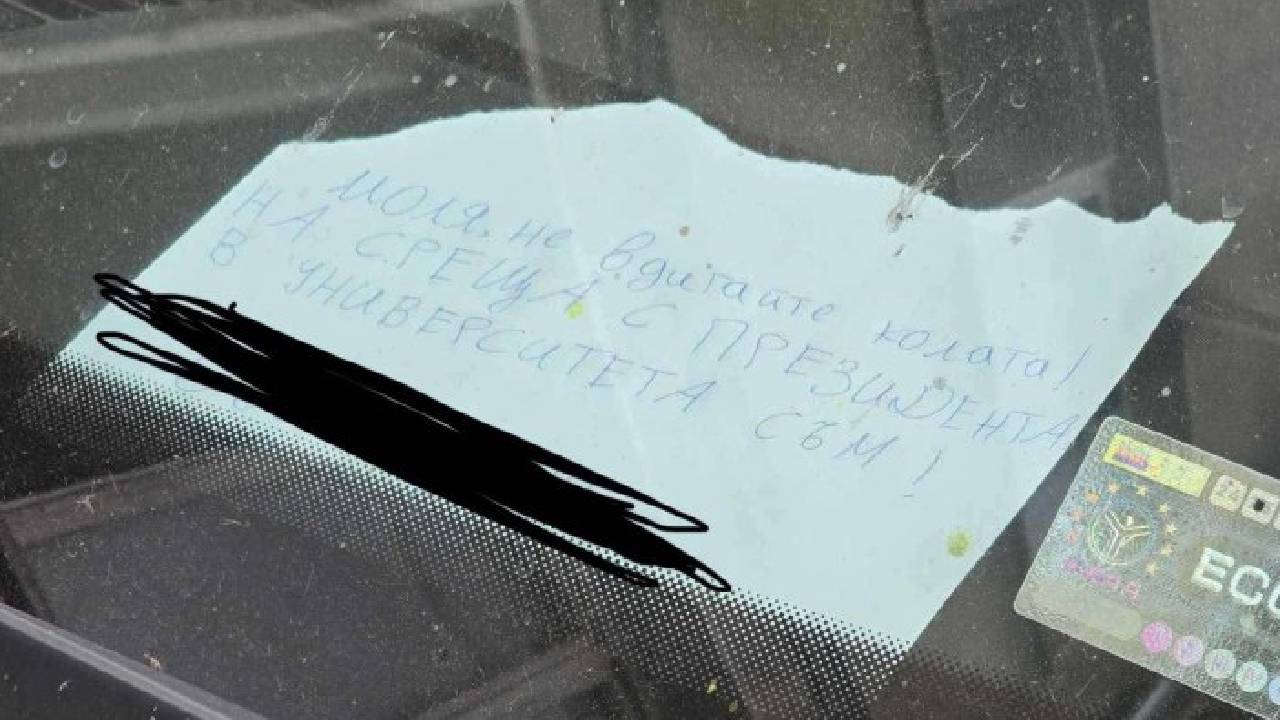 Моля, не вдигайте колата!
НА СРЕЩА С ПРЕЗИДЕНТА
В УНИВЕРСИТЕТА СЪМ!